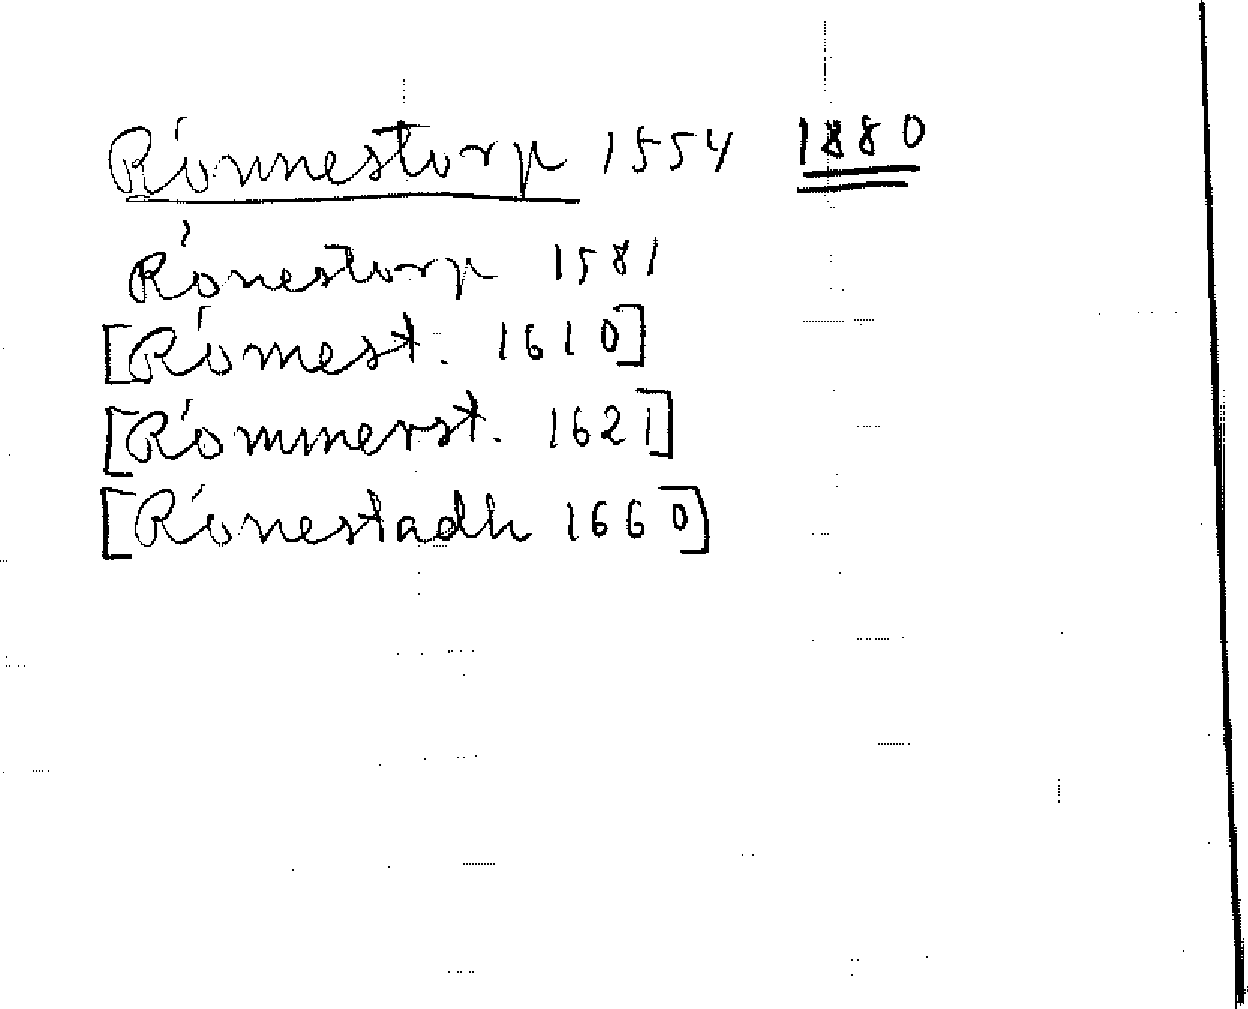 Rónnestorp 1554 1880
Rónestorp 1581
[Rómest. 1610]
[Rómmerst. 1621]
[Rónestadh 1660]